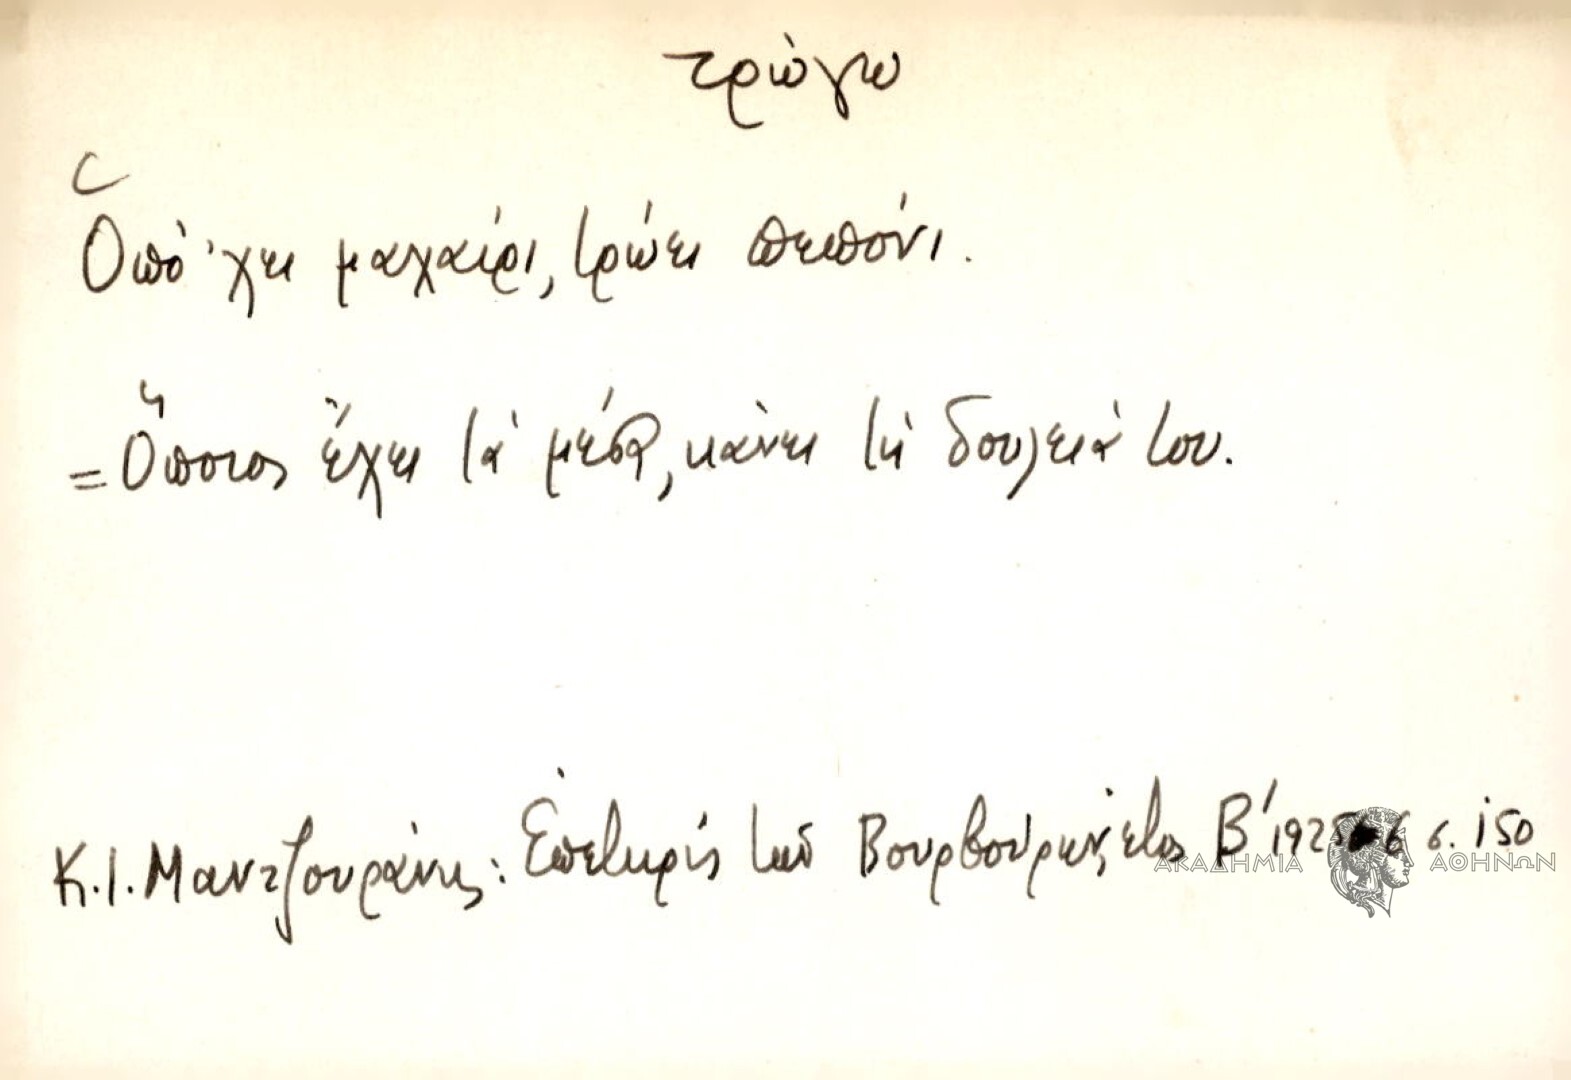 τρώγω
Ὁπὄ 'χει μαχαίρι, τρώει πεπόνι.
= Ὅποιος ἔχει τὰ μέσα, κάνει τὴ δουλειά του.
Κ.Ι. Μαντζουράνης: Ἐπετηρίς τῶν Βουρβούρων, ἔτος Β' 1925-6 σ. 150
ΑΚΑΔΗΜΙΑ ΑΘΗΝΩΝ